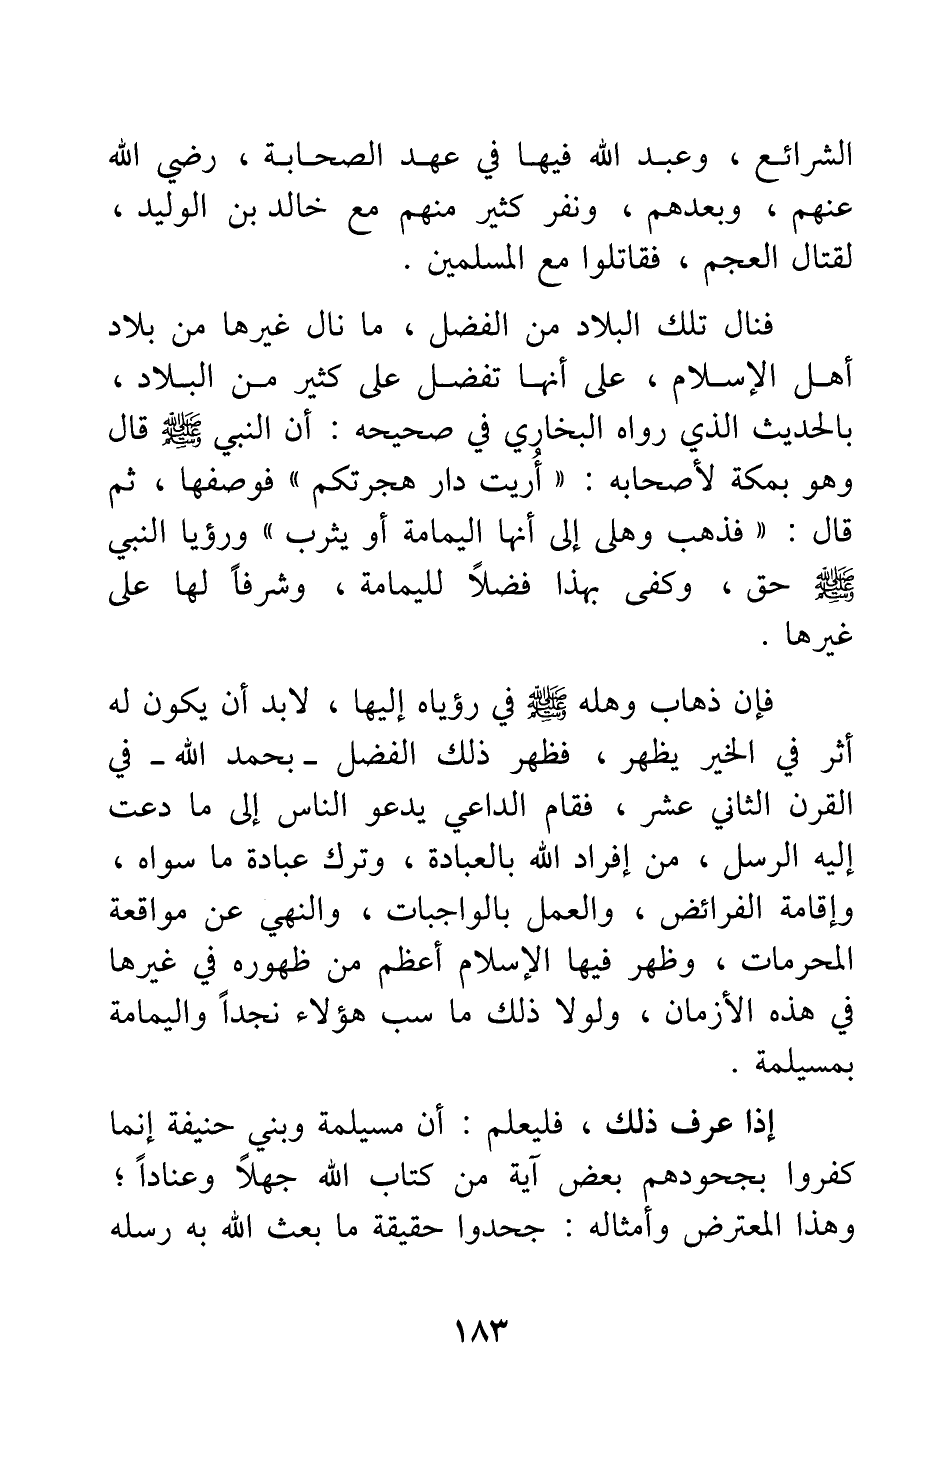 الشرائع ، وعبد الله فيها في عهد الصحابة ، رضي الله
عنهم ، وبعدهم ، ونفر كثير منهم مع خالد بن الوليد ،
لقتال العجم ، فقاتلوا مع المسلمين .
فنال تلك البلاد من الفضل ، ما نال غيرها من بلاد
أهل الإسلام ، على أنها تفضل على كثير من البلاد ،
بالحديث الذي رواه البخاري في صحيحه : أن النبي ﷺ قال
وهو بمكة لأصحابه : « أُريت دار هجرتكم » فوصفها ، ثم
قال : « فذهب وهلي إلى أنها اليمامة أو يثرب » ورؤيا النبي
ﷺ حق ، وكفى بهذا فضلاً لليمامة ، وشرفاً لها على
غيرها .
فإن ذهاب وهله ﷺ في رؤياه إليها ، لابد أن يكون له
أثر في الخير يظهر ، فظهر ذلك الفضل ـ بحمد الله ـ في
القرن الثاني عشر ، فقام الداعي يدعو الناس إلى ما دعت
إليه الرسل ، من إفراد الله بالعبادة ، وترك عبادة ما سواه ،
وإقامة الفرائض ، والعمل بالواجبات ، والنهي عن مواقعة
المحرمات ، وظهر فيها الإسلام أعظم من ظهوره في غيرها
في هذه الأزمان ، ولولا ذلك ما سب هؤلاء نجداً واليمامة
بمسيلمة .
إذا عرف ذلك ، فليعلم : أن مسيلمة وبني حنيفة إنما
كفروا بجحودهم بعض آية من كتاب الله جهلاً وعناداً ؛
وهذا المعترض وأمثاله : جحدوا حقيقة ما بعث الله به رسله
١٨٣